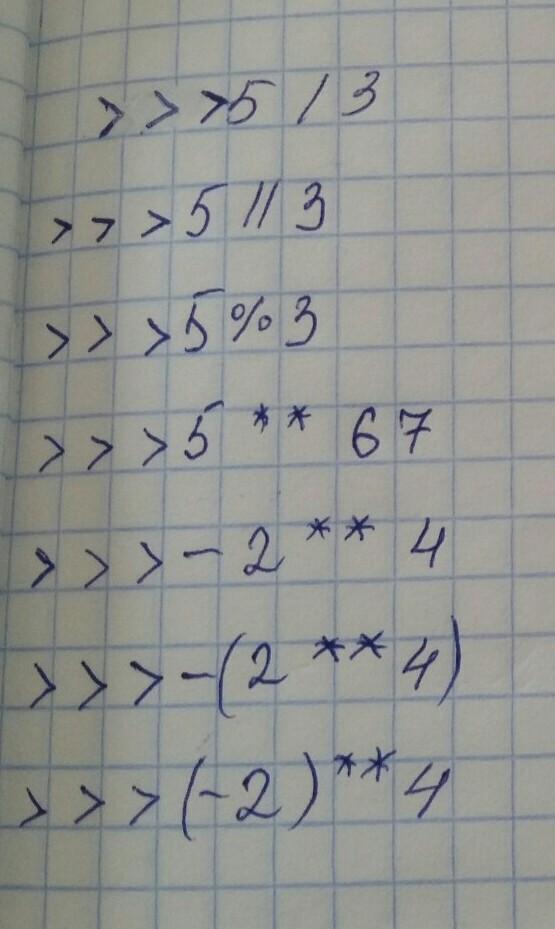 >>>5 / 3
>>>5 // 3
>>>5%3
>>>5 ** 67
>>>-2 ** 4
>>>-(2 ** 4)
>>>(-2)**4